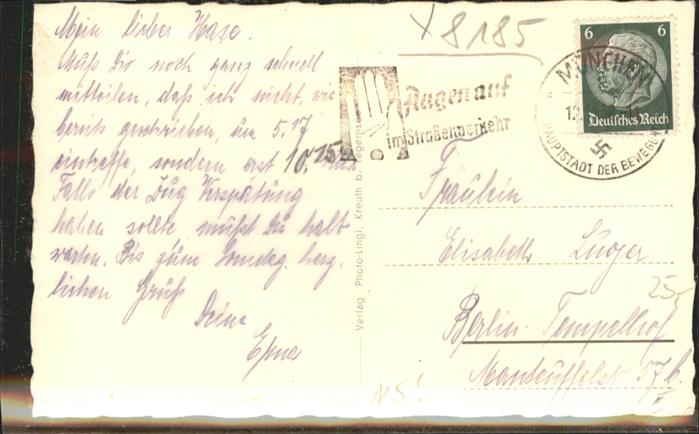 Mein lieber Hase.
Muß Dir noch ganz schnell
mitteilen, daß ich nicht, wie
bereits geschrieben, um 5.17
eintreffe, sondern erst 10.15
Falls der Zug Verspätung
haben sollte mußt Du halt
warten. Bis zum Sonntag herz-
lichen Gruß
Deine
Erna
Verlag Photo-Lingl, Kreuth b. Tegernsee
+ 8185
Augen auf
im Straßenverkehr
MÜNCHEN
HAUPTSTADT DER BEWEGUNG
6 6
Deutsches Reich
Fräulein
Elisabeth
Berlin-Tempelhof
Manteuffelstr. 57b.
25
NS!